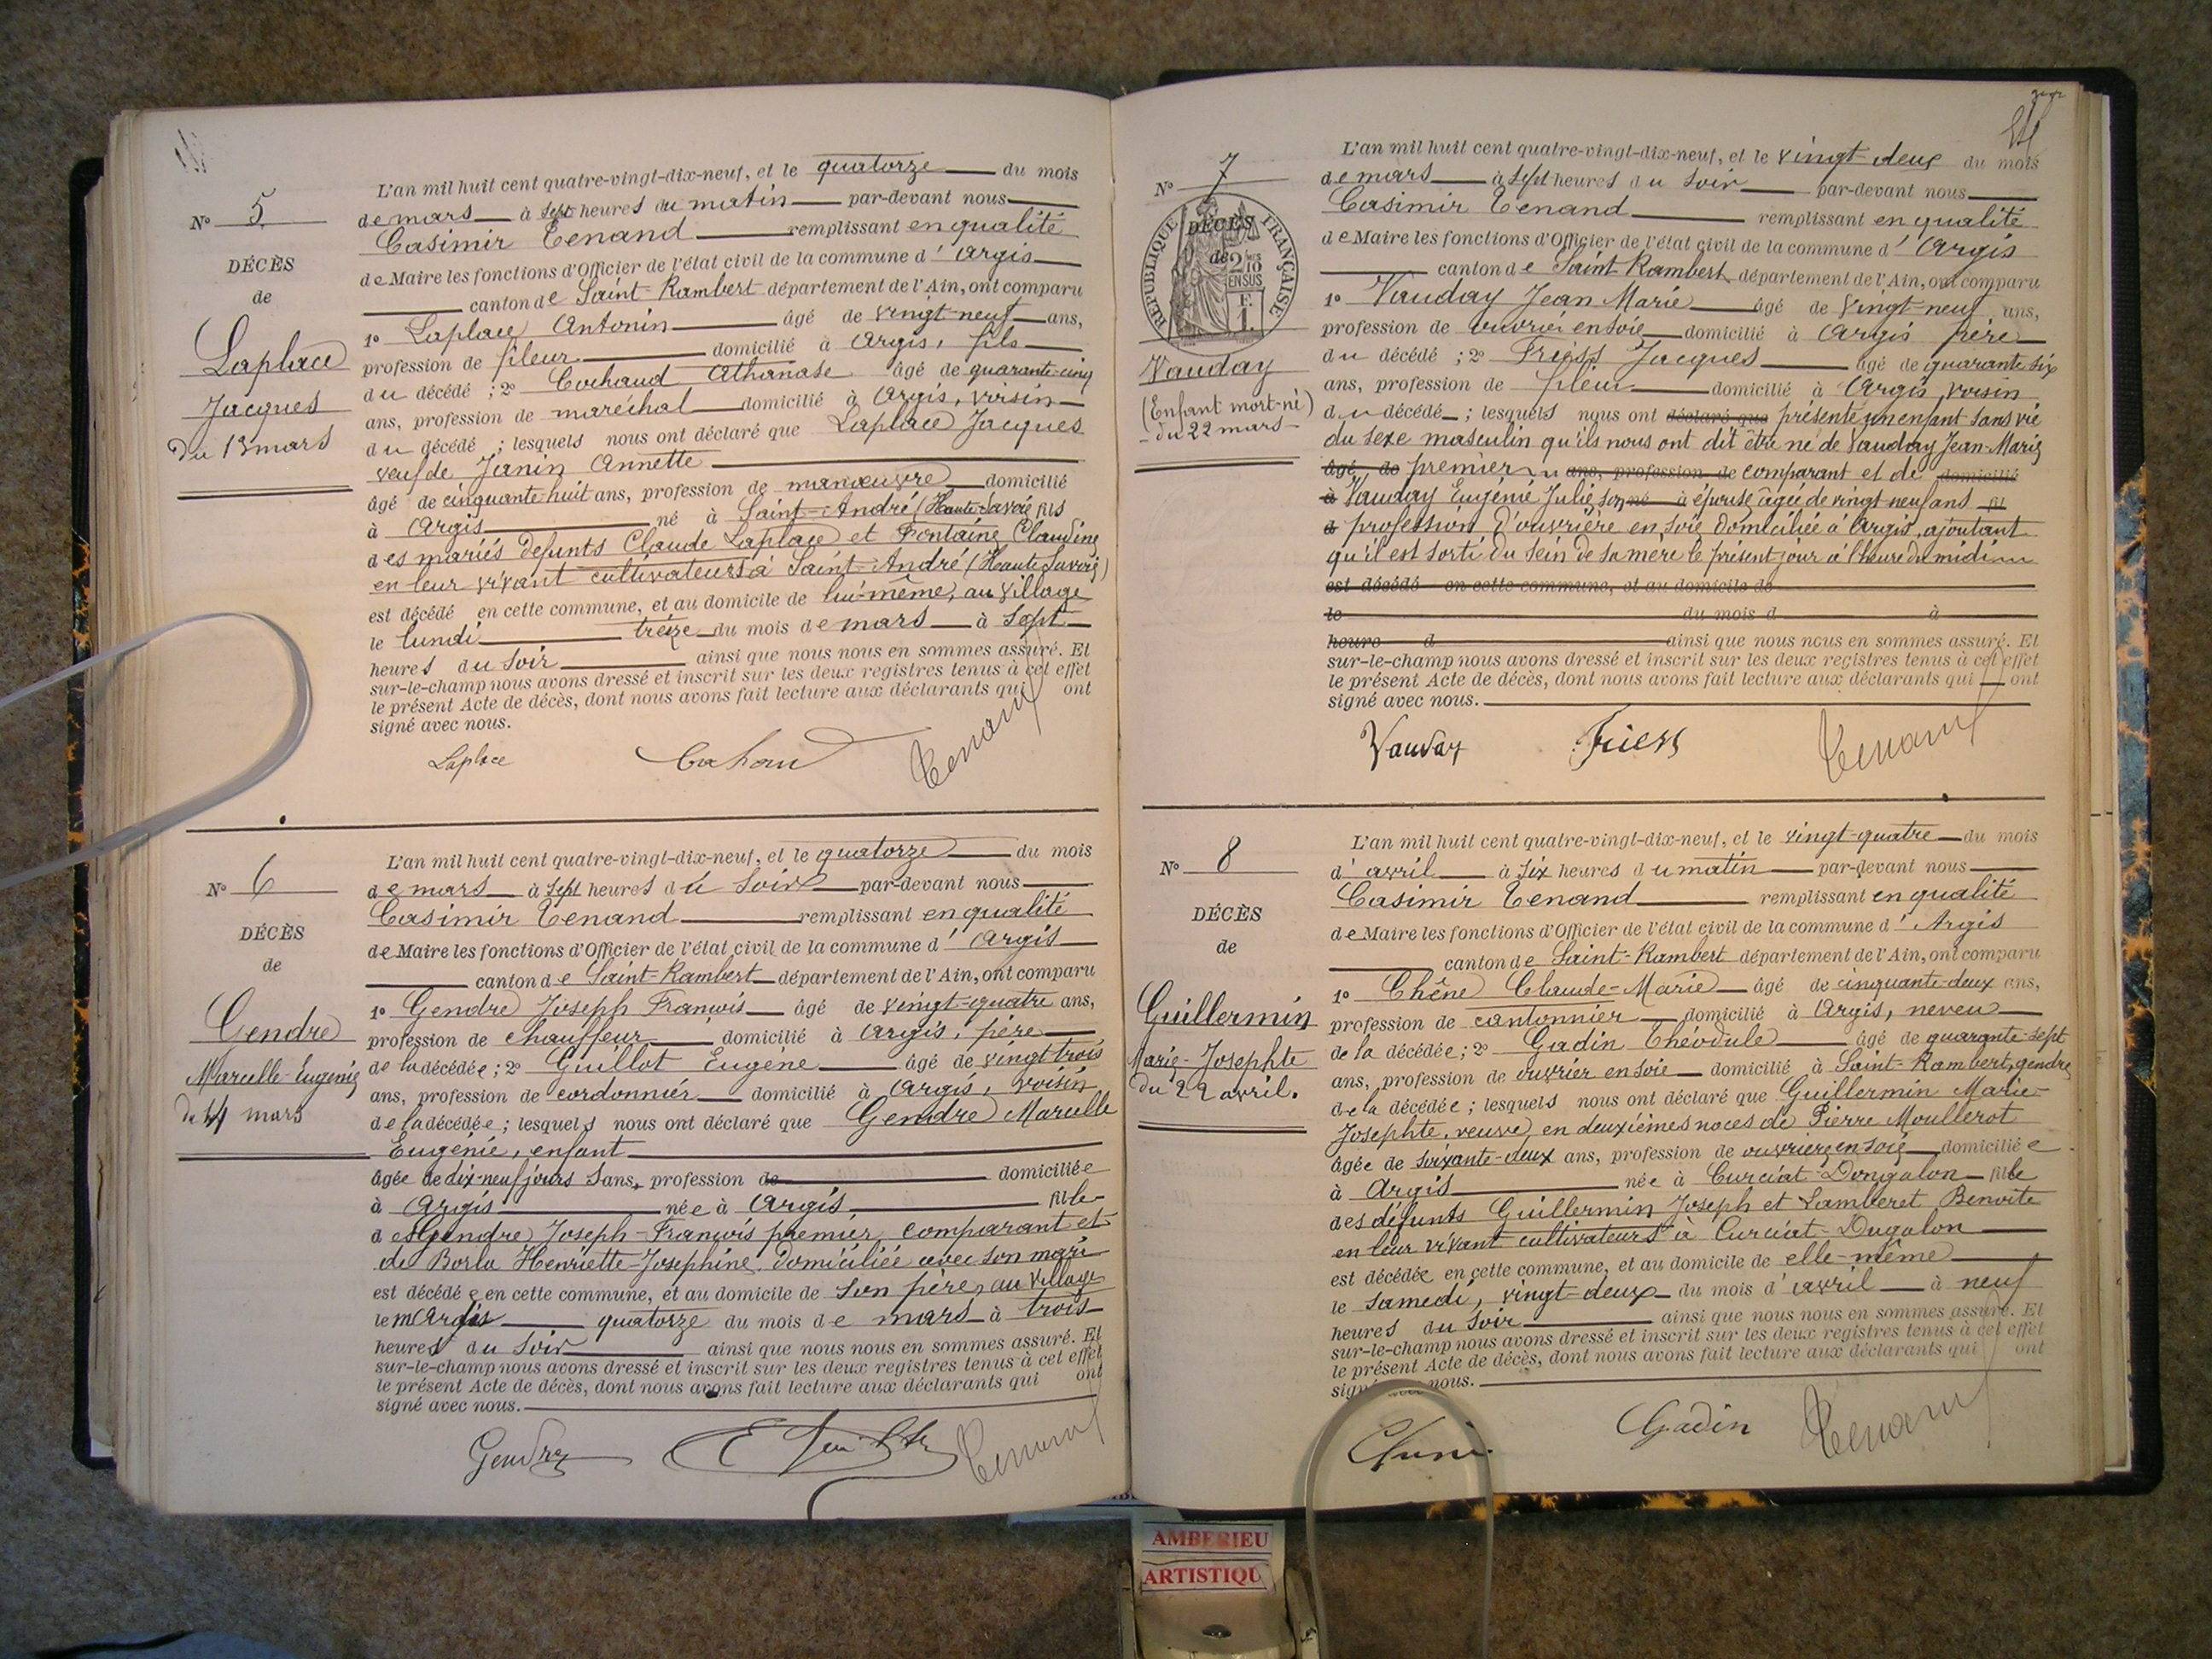 N° 5
DÉCÈS
de
Laplace
Jacques
du 13 mars
L'an mil huit cent quatre-vingt-dix-neuf, et le quatorze du mois
de mars à sept heures du matin par-devant nous
Casimir Tenand remplissant en qualité
de Maire les fonctions d'Officier de l'état civil de la commune d'Argis
canton de Saint-Rambert département de l'Ain, ont comparu
1° Laplace Antonin âgé de vingt-neuf ans,
profession de fileur domicilié à Argis, fils
du décédé ; 2° Cochaud Athanase âgé de quarante-cinq
ans, profession de maréchal domicilié à Argis, voisin
du décédé ; lesquels nous ont déclaré que Laplace Jacques
veuf de Janin Annette
âgé de cinquante-huit ans, profession de manœuvre domicilié
à Argis né à Saint-André (Haute-Savoie fils
des mariés défunts Claude Laplace et Fontaine Claudine
en leur vivant cultivateurs à Saint-André (Haute Savoie)
est décédé en cette commune, et au domicile de lui-même, au village
le lundi treize du mois de mars à sept
heures du soir ainsi que nous nous en sommes assuré. Et
sur-le-champ nous avons dressé et inscrit sur les deux registres tenus à cet effet
le présent Acte de décès, dont nous avons fait lecture aux déclarants qui ont
signé avec nous.
Laplace Tenand
N° 6
DÉCÈS
de
Gendre
Marcelle-Eugénie
du 14 mars
L'an mil huit cent quatre-vingt-dix-neuf, et le quatorze du mois
de mars à sept heures du soir par-devant nous
Casimir Tenand remplissant en qualité
de Maire les fonctions d'Officier de l'état civil de la commune d'Argis
canton de Saint-Rambert département de l'Ain, ont comparu
1° Gendre Joseph François âgé de vingt-quatre ans,
profession de chauffeur domicilié à Argis, père
de la décédée ; 2° Guillot Eugène âgé de vingt trois
ans, profession de cordonnier domicilié à Argis, voisin
de la décédée ; lesquels nous ont déclaré que Gendre Marcelle
Eugénie, enfant
âgée de dix-neuf jours sans, profession de domiciliée
à Argis née à Argis, fille
des Gendre Joseph-François premier comparant et
de Borla Henriette-Josephine domiciliée avec son mari
est décédée en cette commune, et au domicile de son père, au village
le mardi quatorze du mois de mars à trois
heures du soir ainsi que nous nous en sommes assuré. Et
sur-le-champ nous avons dressé et inscrit sur les deux registres tenus à cet effet
le présent Acte de décès, dont nous avons fait lecture aux déclarants qui ont
signé avec nous.
Gendre Tenand
N° 7
DÉCÈS
de
RÉPUBLIQUE FRANÇAISE
2/10 EN SUS
F. 1.
Vauday
(Enfant mort-né)
du 22 mars
L'an mil huit cent quatre-vingt-dix-neuf, et le vingt-deux du mois
de mars à sept heures du soir par-devant nous
Casimir Tenand remplissant en qualité
de Maire les fonctions d'Officier de l'état civil de la commune d'Argis
canton de Saint-Rambert département de l'Ain, ont comparu
1° Vauday Jean Marie âgé de vingt-neuf ans,
profession de ouvrier en soie domicilié à Argis père
du décédé ; 2° Friess Jacques âgé de quarante six
ans, profession de fileur domicilié à Argis, voisin
du décédé ; lesquels nous ont déclaré que présenté un enfant sans vie
du sexe masculin qu'ils nous ont dit être né de Vauday Jean-Marie
âgé, de premier ans, profession de comparant et de domicilié
à Vauday Eugénie Julie son né à épouse âgée de vingt neuf ans fil
d profession d'ouvrière en soie domiciliée à Argis, ajoutant
qu'il est sorti du sein de sa mère le présent jour à l'heure de midi
est décédé en cette commune, et au domicile de
le du mois d à
heure d ainsi que nous nous en sommes assuré. Et
sur-le-champ nous avons dressé et inscrit sur les deux registres tenus à cet effet
le présent Acte de décès, dont nous avons fait lecture aux déclarants qui ont
signé avec nous.
Vauday Friess Tenand
N° 8
DÉCÈS
de
Guillermin
Marie-Josephte
du 22 avril.
L'an mil huit cent quatre-vingt-dix-neuf, et le vingt-quatre du mois
d'avril à six heures du matin par-devant nous
Casimir Tenand remplissant en qualité
de Maire les fonctions d'Officier de l'état civil de la commune d'Argis
canton de Saint-Rambert département de l'Ain, ont comparu
1° Chêne Claude-Marie âgé de cinquante-deux ans,
profession de cantonnier domicilié à Argis, neveu
de la décédée ; 2° Gadin Théodule âgé de quarante-sept
ans, profession de ouvrier en soie domicilié à Saint-Rambert, gendre
de la décédée ; lesquels nous ont déclaré que Guillermin Marie-
Josephte, veuve en deuxièmes noces de Pierre Moullerot
âgée de soixante-deux ans, profession de ouvrière en soie domiciliée
à Argis née à Curciat-Dongalon fille
des défunts Guillermin Joseph et Lamberet Benoite
en leur vivant cultivateurs à Curciat-Dugalon
est décédée en cette commune, et au domicile de elle-même
le samedi, vingt-deux du mois d'avril à neuf
heures du soir ainsi que nous nous en sommes assuré. Et
sur-le-champ nous avons dressé et inscrit sur les deux registres tenus à cet effet
le présent Acte de décès, dont nous avons fait lecture aux déclarants qui ont
signé avec nous.
Gadin Tenand
AMBERIEU
ARTISTIQU